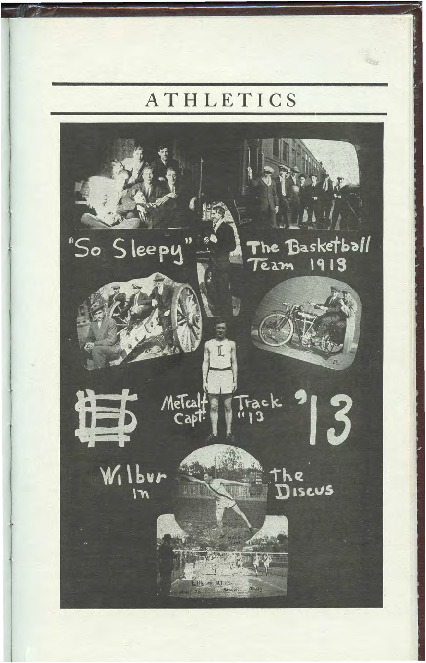 ATHLETICS
"So Sleepy"
The Basketball
Team 1913
Metcalf Track
Capt. "13
'13
Wilbur
in
the
Discus